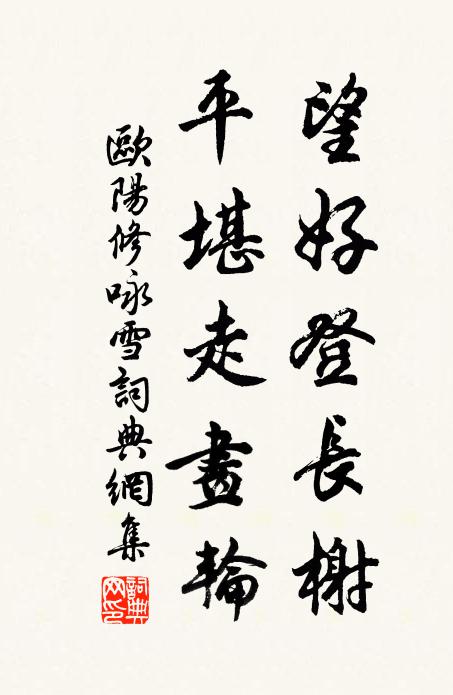 望好登長榭
平堪走畫輪
歐陽修咏雪詞典網集
詞典網印